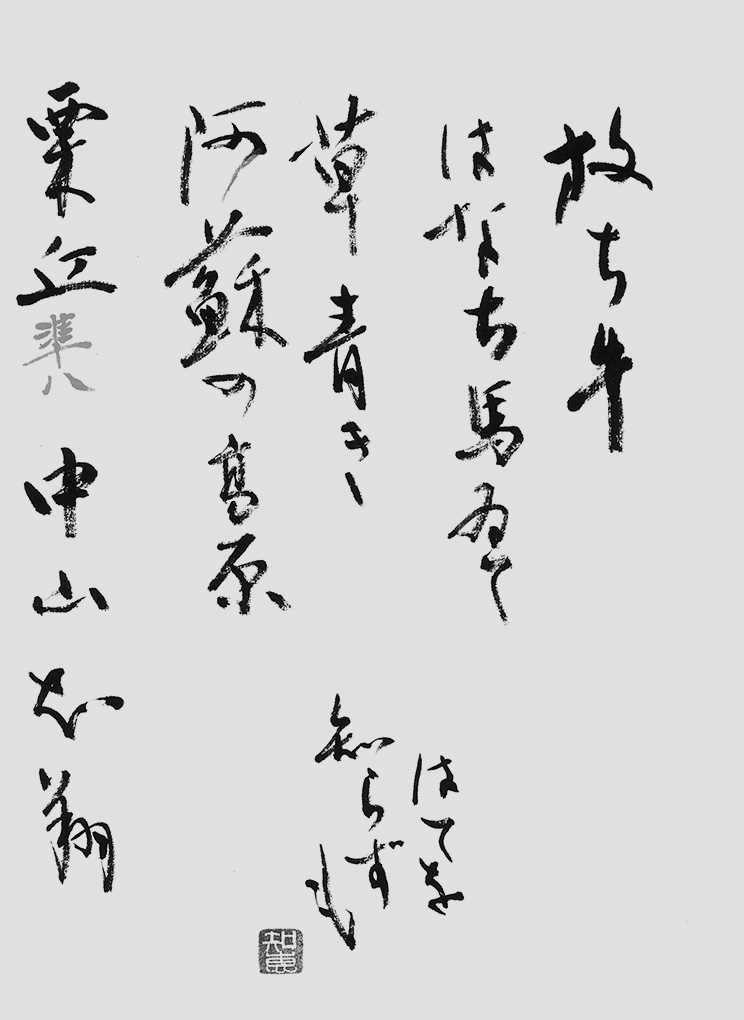 放ち牛
はなち馬ゐて
草青き
阿蘇の高原
はてを
知らずも
栗丘準八 中山 翔